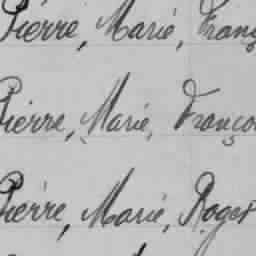 Pierre, Marie, Franç
Pierre, Marie, Franço
Pierre, Marie, Roger